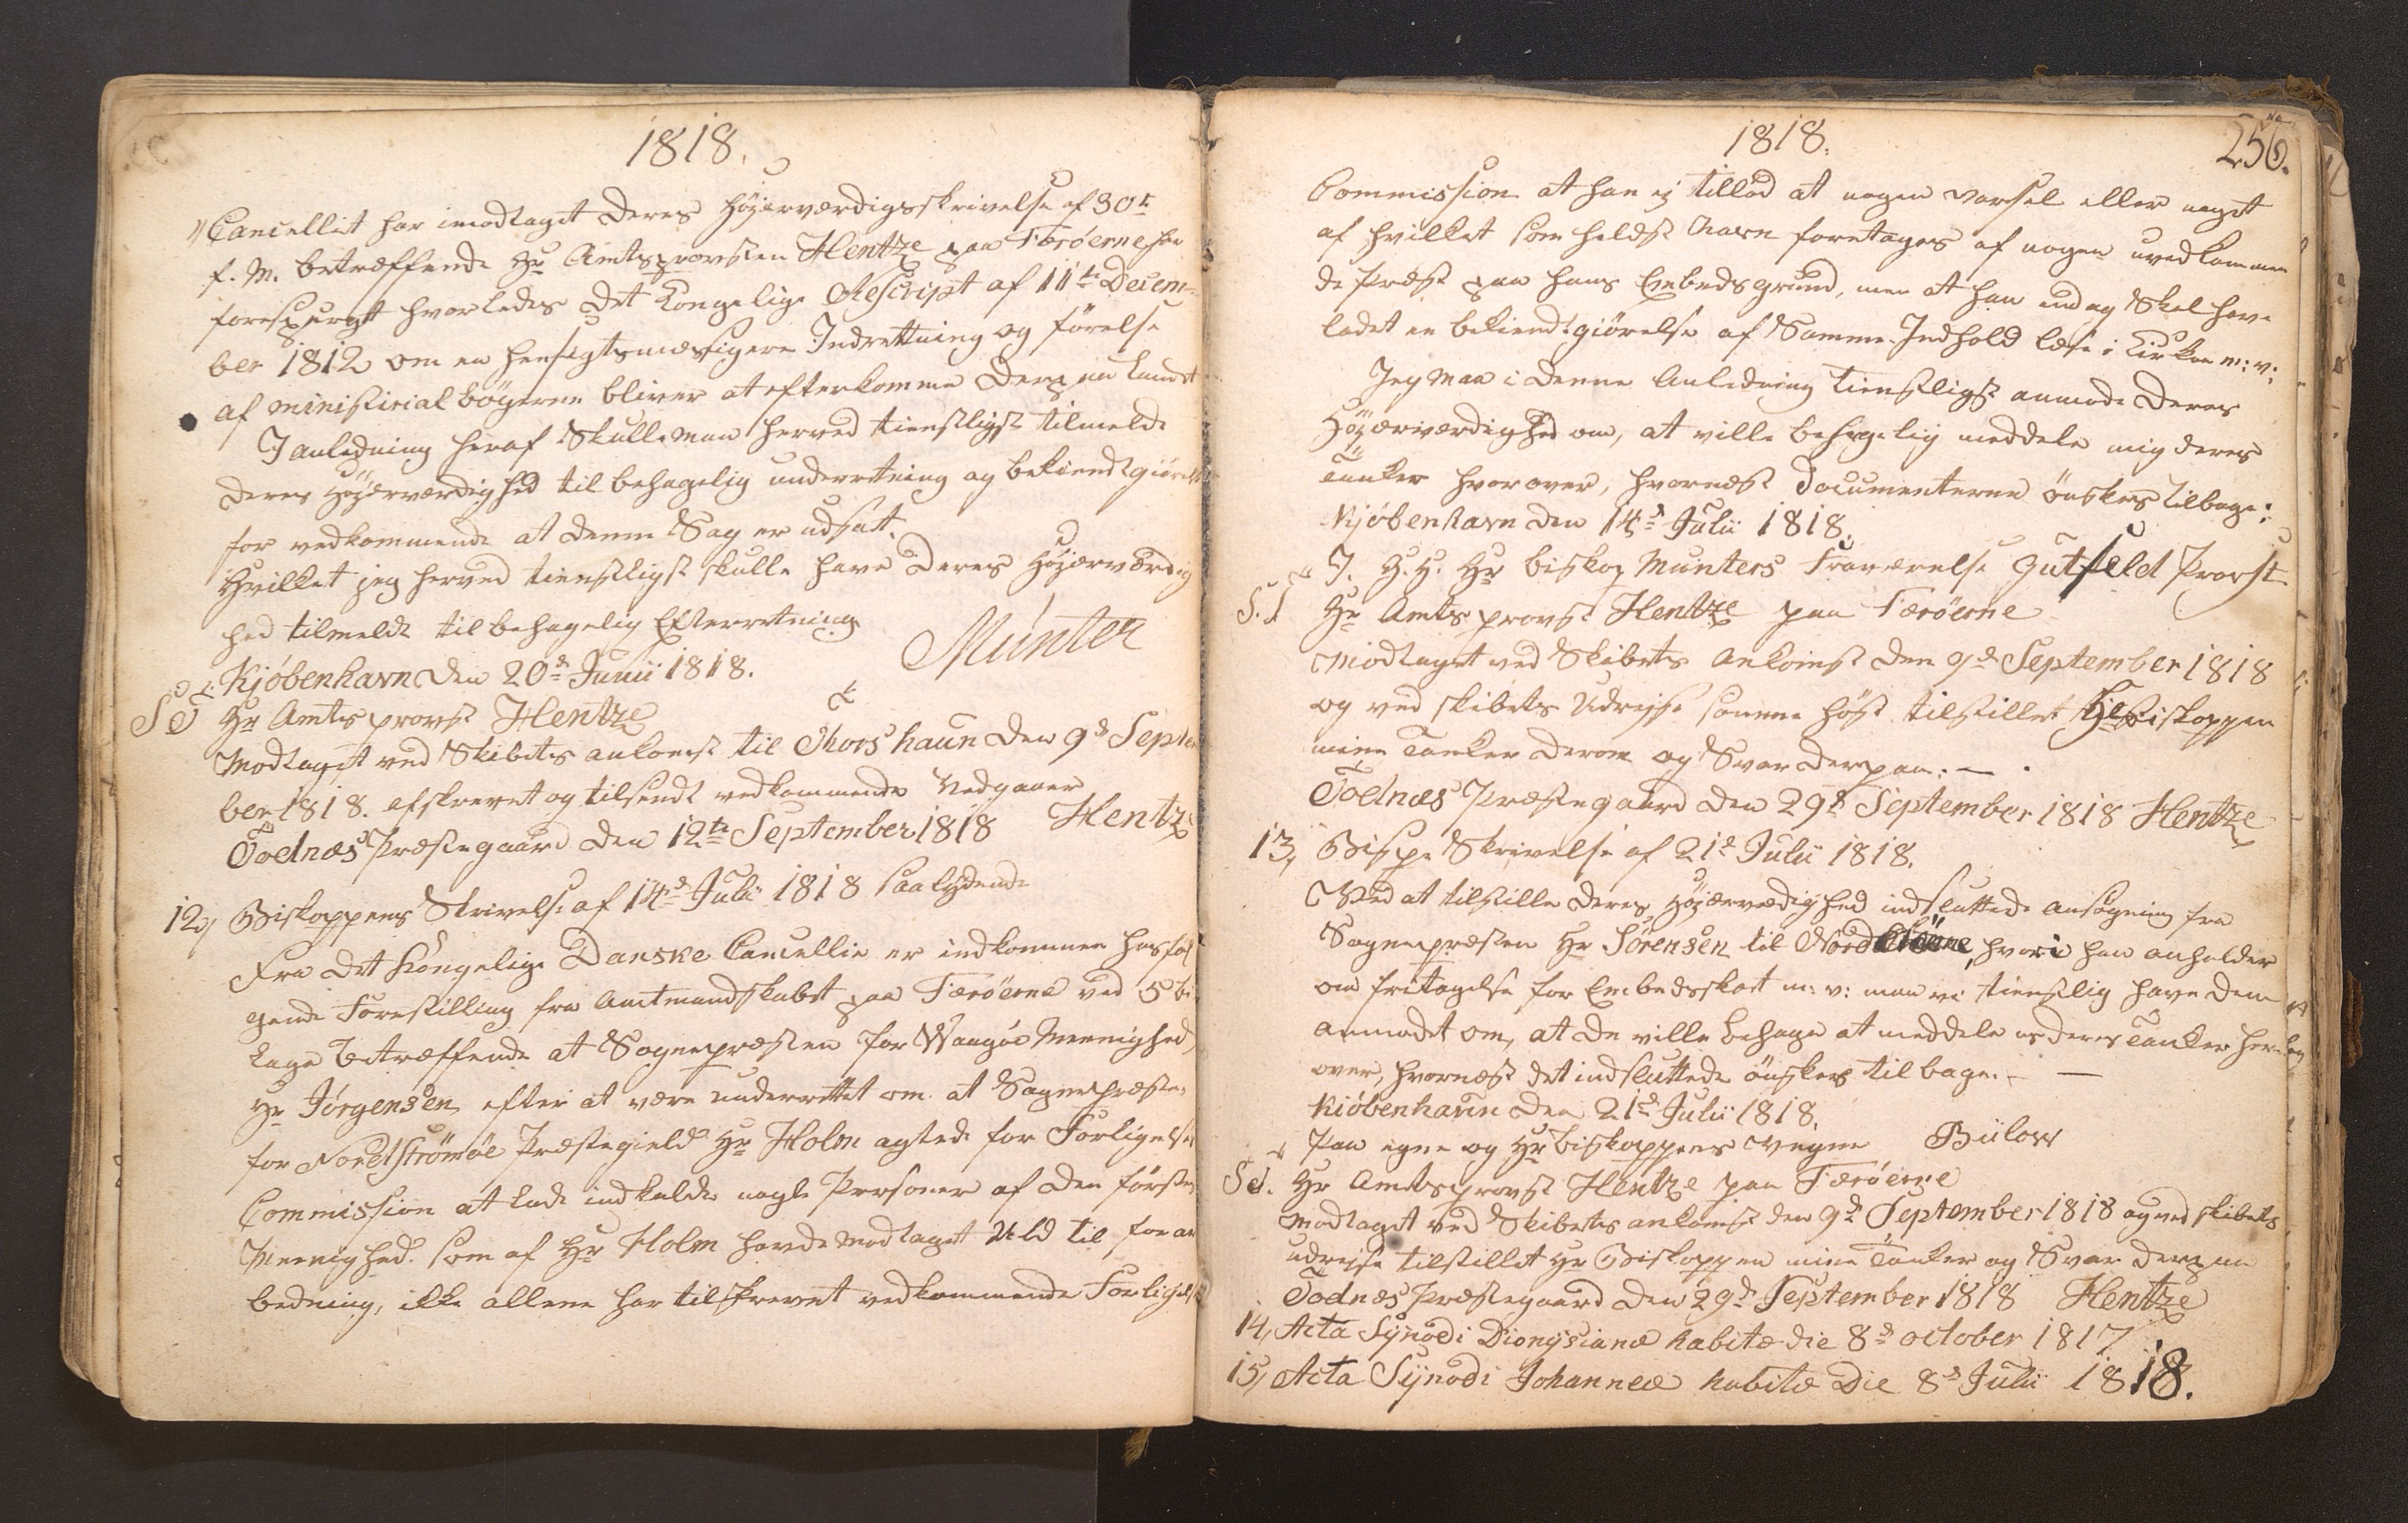 1818.
"Cancelliet har imodtaget Deres Høiærværdigsskrivelse af 30te
f. M. betræffende Hr Amtsprovsten Hentze paa Færöerne har
forespurgt hvorledes Det Kongelige Rescript af 11te Decem-
ber 1812 om en hensigtsmæssigere Indretning og förelse
af Ministerial bögerne bliver at efterkomme Der paa Landet
I anledning heraf Skulle man herved tienstligst tilmelde
Deres Höjærværdighed til behagelig underretning og bekiendtgiörelse
for vedkommende at denne Sag er udsat.
Hvilket jeg herved tienstligst skulle have Deres Höjærværdig
hed tilmeldt til behagelig Efterretning
Kjøbenhavn den 20de Junii 1818. Münter
S T Hr Amts provst Hentze
Modtaget ved Skibets ankomst til Thorshaun den 9de Septem
ber 1818. afskrevet og tilsendt vedkommende Vedgaaer
Todnæs Præstegaard den 12te September 1818 Hentze
12, Biskoppens Skrivelse af 14de Julii 1818 saa lydende
Fra Det Kongelige Danske Cancellie er indkommen hosföl
gende Forestilling fra Amtmandskabet paa Færöerne ved 5 bi
lage betræffende at Sognepræsten for Waagöe Meenighed,
Hr Jörgensen efter at være underrettet om at Sognepræsten
for Nordströmöe Præstegield Hr Holm agtede for Forligelses
Commission at lade indkalde nogle Personer af den förstes
Meenighed. som af Hr Holm havde modtaget Uld til for ar
bedning, ikke allene har tilskrevet vedkommende Forligelses
1818.
256.
Commission at han ej tillod at nogen Varsel eller noget
af hvilket som heldst Navn foretages af nogen uvedkommen
de Præst paa hans Embedsgrund, men at han endog Skal have
ladet en bekiendtgiörelse af Samme Indhold læse i Kirken m: v:
Jeg maa i Denne Anledning tienstligst anmode Deres
Höjærværdighed om, at ville behagelig meddele mig deres
Tanker hvorover, hvornæst Documenterne önskes tilbage:
Kjøbenhavn den 14de Julii 1818.
I. H. H. Hr biskop Munters Fraværelse Gutfeld Provst
S. T Hr Amts provst Hentze paa Færöerne
Modtaget ved Skibets Ankomst den 9de September 1818
og ved skibets Udrejse samme höst tilstillet Hr Biskoppen
mine Tanker derom og Svar derpaa: —
Todnæs Præstegaard den 29de September 1818 Hentze
13, Bispe Skrivelse af 21de Julii 1818.
Ved at tilstille Deres Höjærværdighed indsluttede ansögning fra
Sognepræsten Hr Sörensen til Norderöerne, hvori han anholder
om fritagelse for Embedsskat m: v: maa vi tienstlig have dem
anmodet om, at De ville behage at meddele os deres Tanker her
over, hvornæst det indsluttede önskes tilbage. —
Kiöbenhavn den 21de Julii 1818.
Paa egne og Hr biskoppens Vegne Bülow
S T. Hr Amtsprovst Hentze paa Færöerne
Modtaget ved Skibets ankomst den 9de September 1818 og ved skibets
udrejse tilstillet Hr Biskoppen mine Tanker og Svar derpaa
Todnæs Præstegaard den 29de September 1818 Hentze
14, Acta Synodi Dionysianæ habitæ die 8de october 1817
15, Acta Synodi Johanneæ habitæ Die 8de Julii 1818.